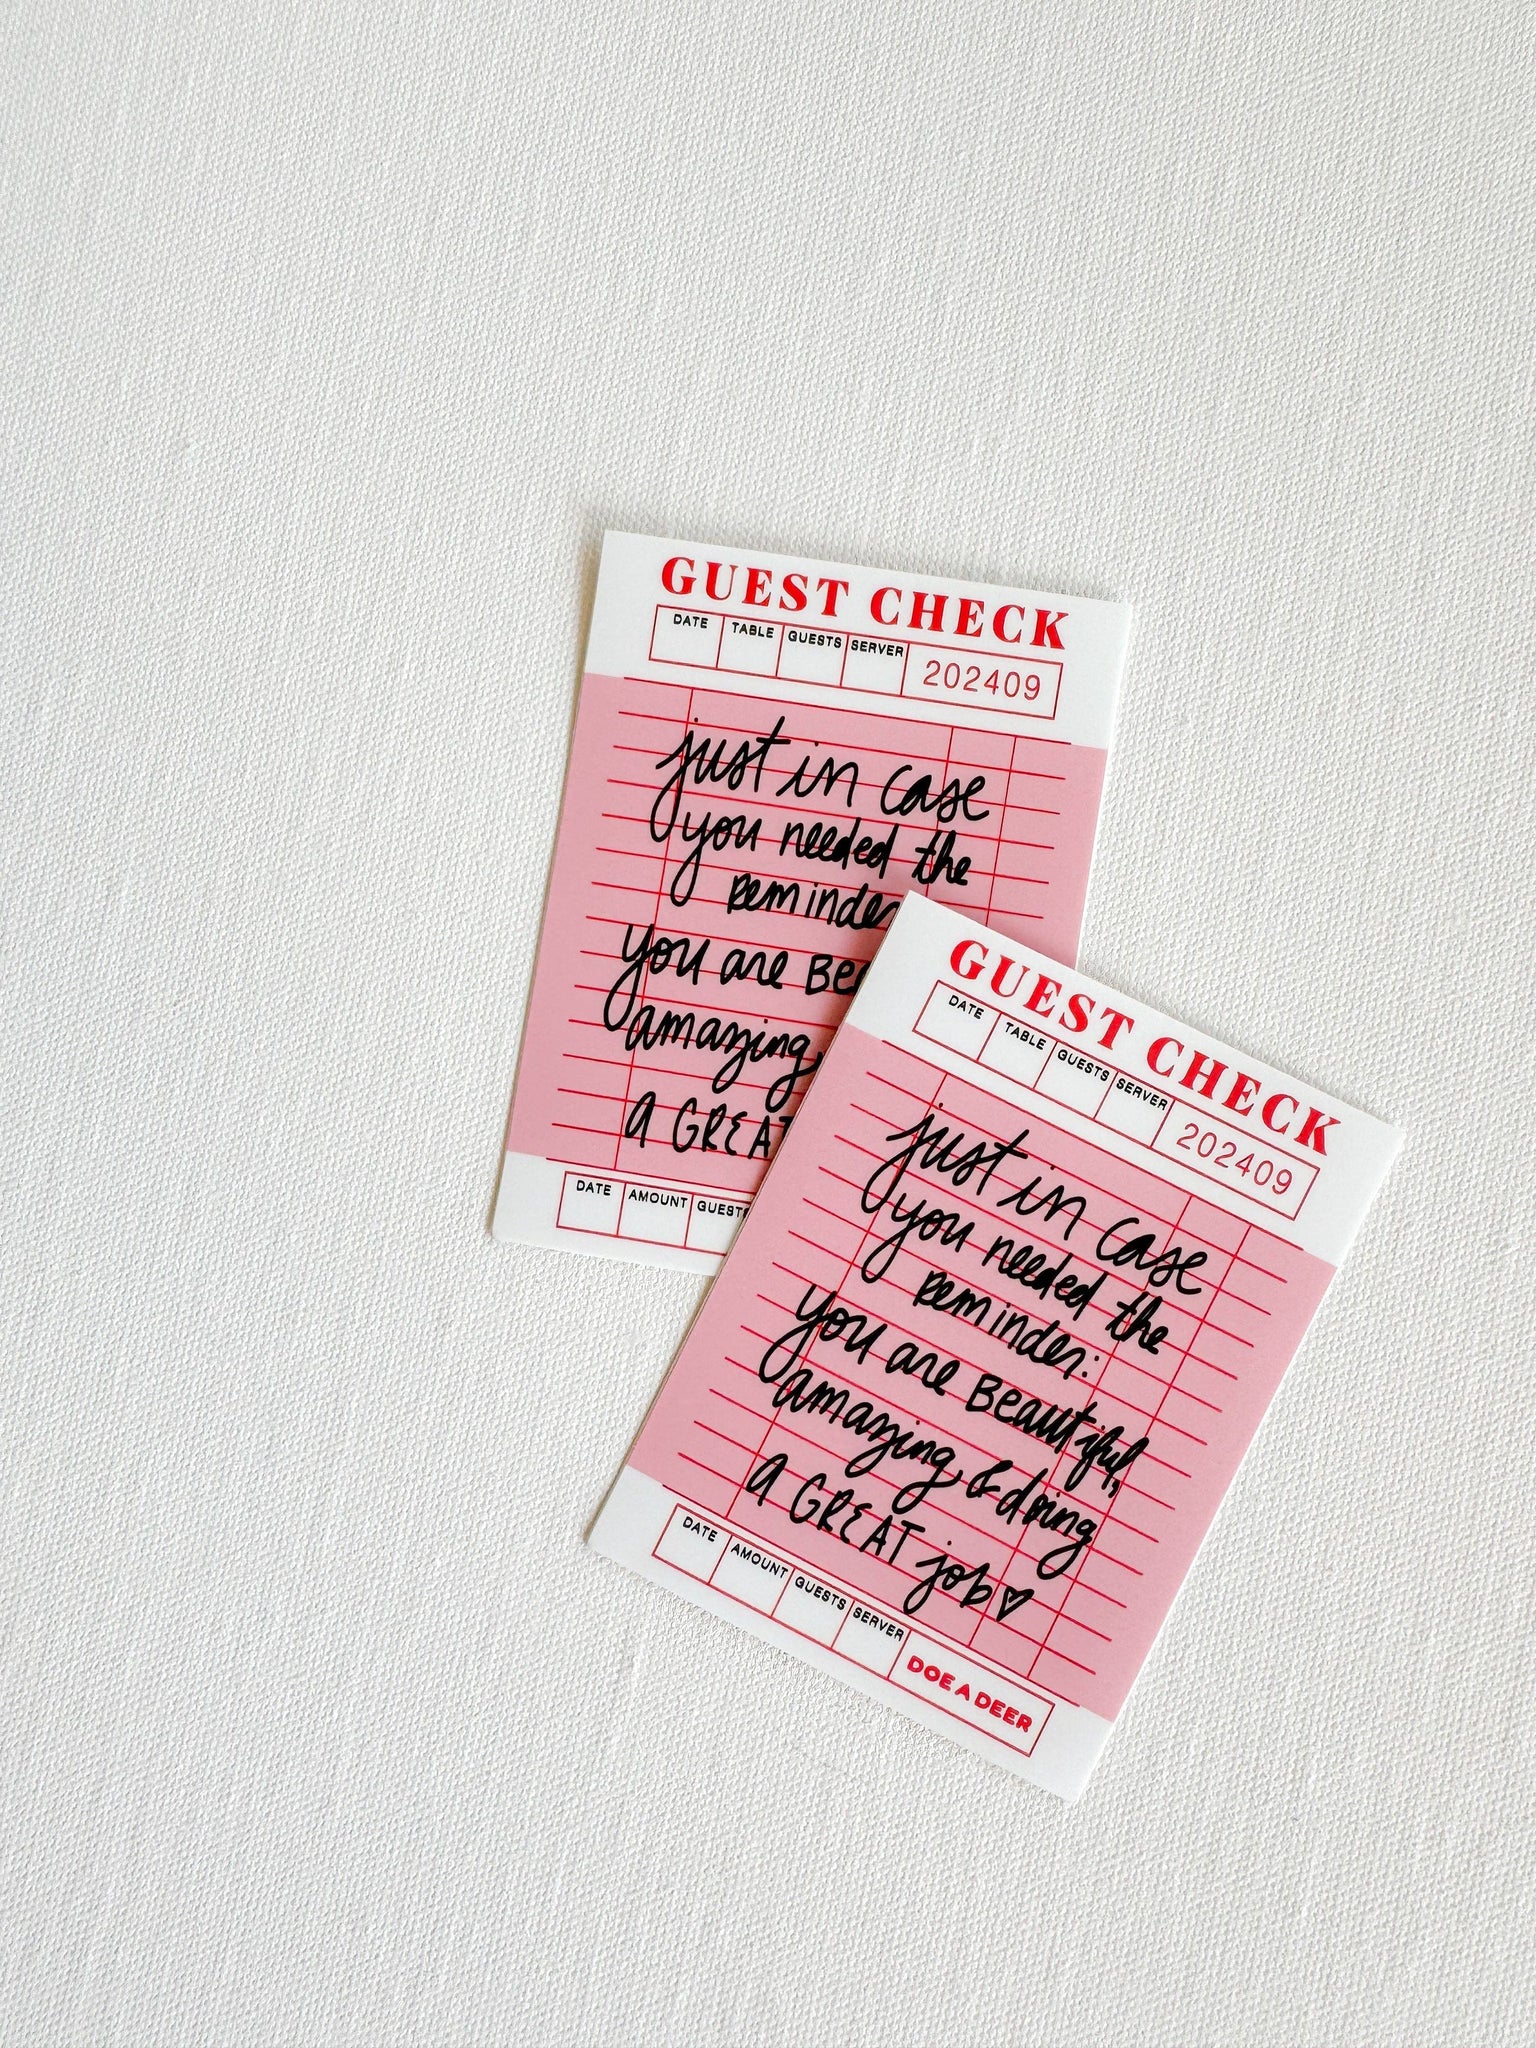 GUEST CHECK
DATE TABLE GUESTS SERVER 202409
just in case
you needed the
reminder
you are Bea
amazing,
A GREAT
DATE AMOUNT GUESTS
GUEST CHECK
DATE TABLE GUESTS SERVER 202409
just in case
you needed the
reminder:
you are Beautiful,
amazing, & doing
A GREAT job♡
DATE AMOUNT GUESTS SERVER DOE A DEER